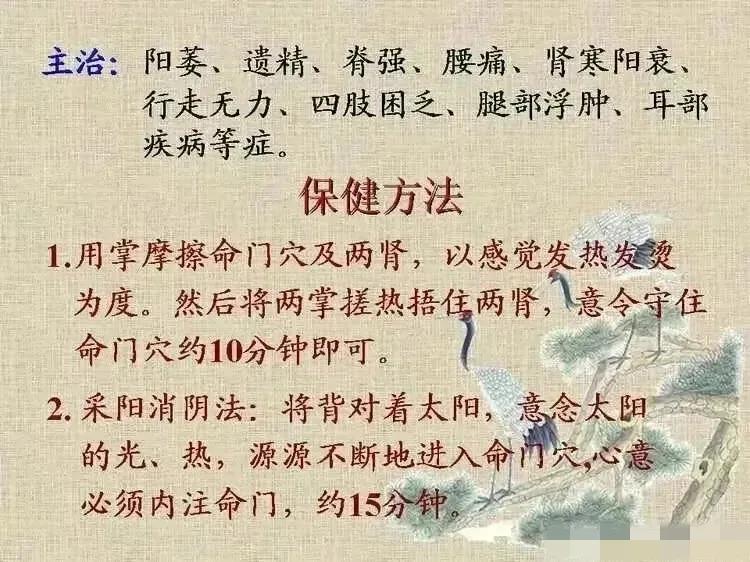 主治：阳萎、遗精、脊强、腰痛、肾寒阳衰、
行走无力、四肢困乏、腿部浮肿、耳部
疾病等症。
保健方法
1.用掌摩擦命门穴及两肾，以感觉发热发烫
为度。然后将两掌搓热捂住两肾，意令守住
命门穴约10分钟即可。
2.采阳消阴法：将背对着太阳，意念太阳
的光、热，源源不断地进入命门穴,心意
必须内注命门，约15分钟。